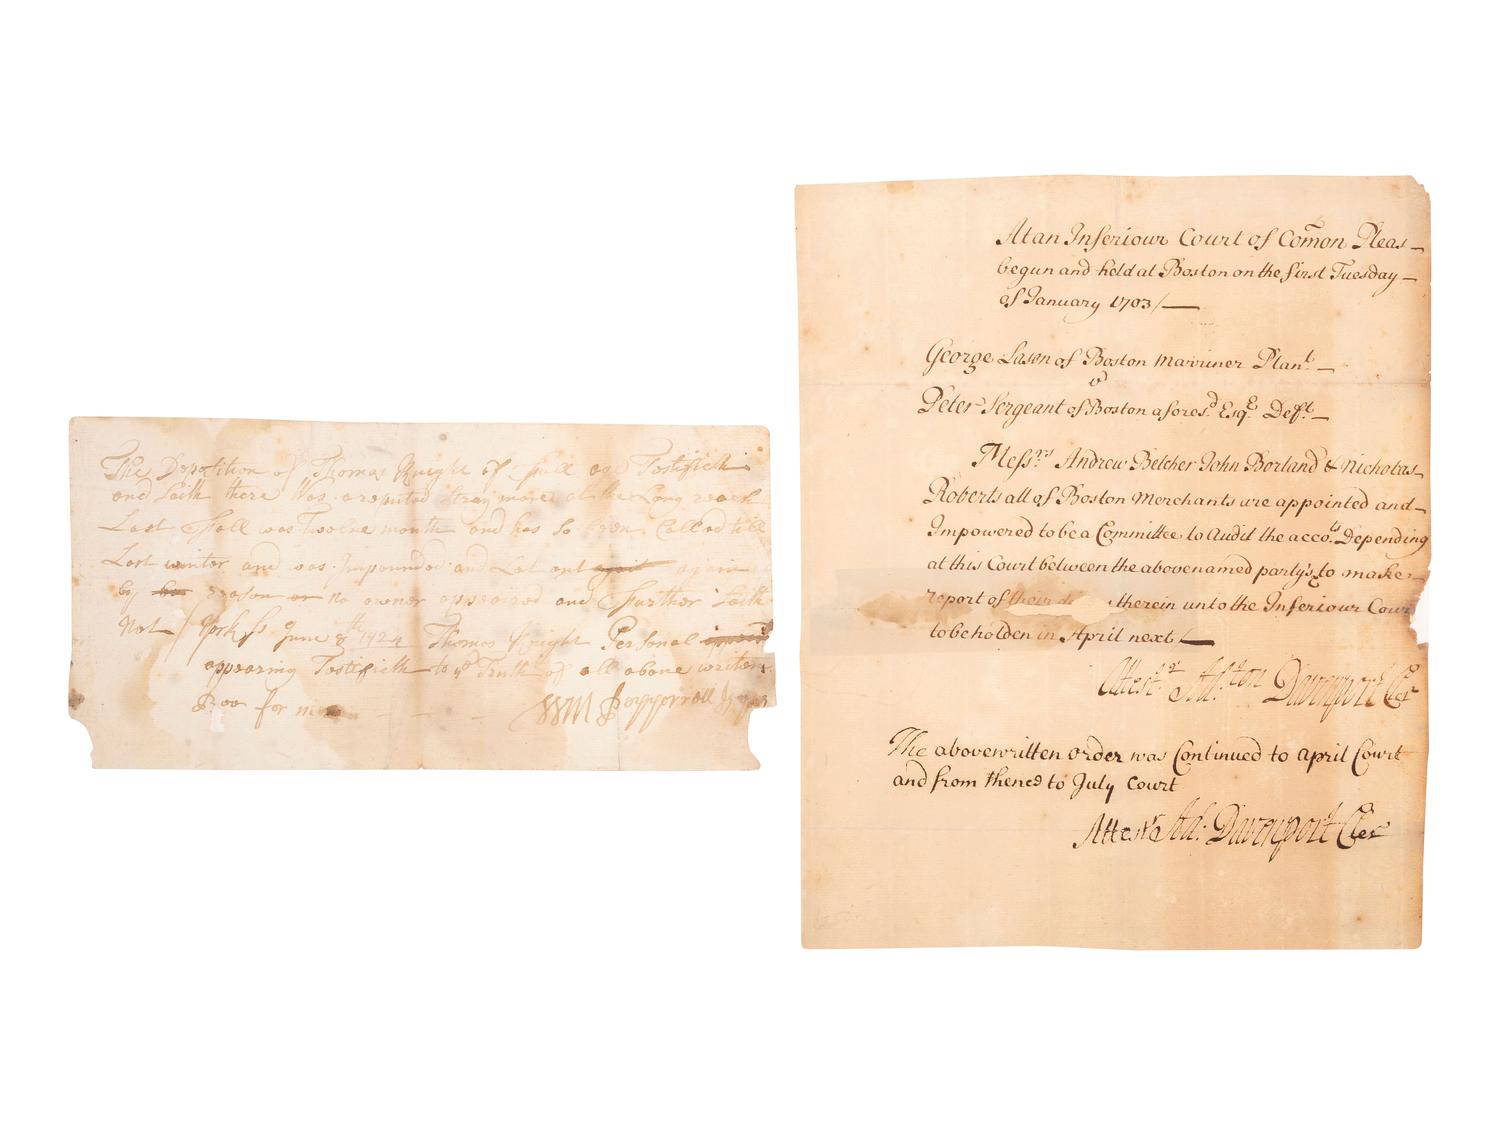 The Deposition of Thomas Knight of full age Testifieth
and Saith there Was a reputed stray mare at the Long reach
Last Fall was Twelve month and has so been Called till
Last winter and was Impounded and Let out again
by reason no owner appeared and Further Saith
Not / York ss June 8th 1724 Thomas Knight Personal
appearing Testifieth to ye Truth of all above written
Before me
Wm Pepperrell
At an Inferiour Court of Comon Pleas
begun and held at Boston on the first Tuesday
of January 1703/
George Lason of Boston Marriner Plant.
v
Peter Sergeant of Boston afores.d Esq.r Deft.
Mess.rs Andrew Belcher John Borland & Nicholas
Roberts all of Boston Merchants are appointed and
Impowered to be a Committee to Audit the acco.ts Depending
at this Court between the abovenamed partys & to make
report of their therein unto the Inferiour Court
to be holden in April next/
Attest.r Ad.ton Davenport Cler
The abovewritten order was Continued to April Court
and from thence to July Court
Attestr Ad. Davenport Cler